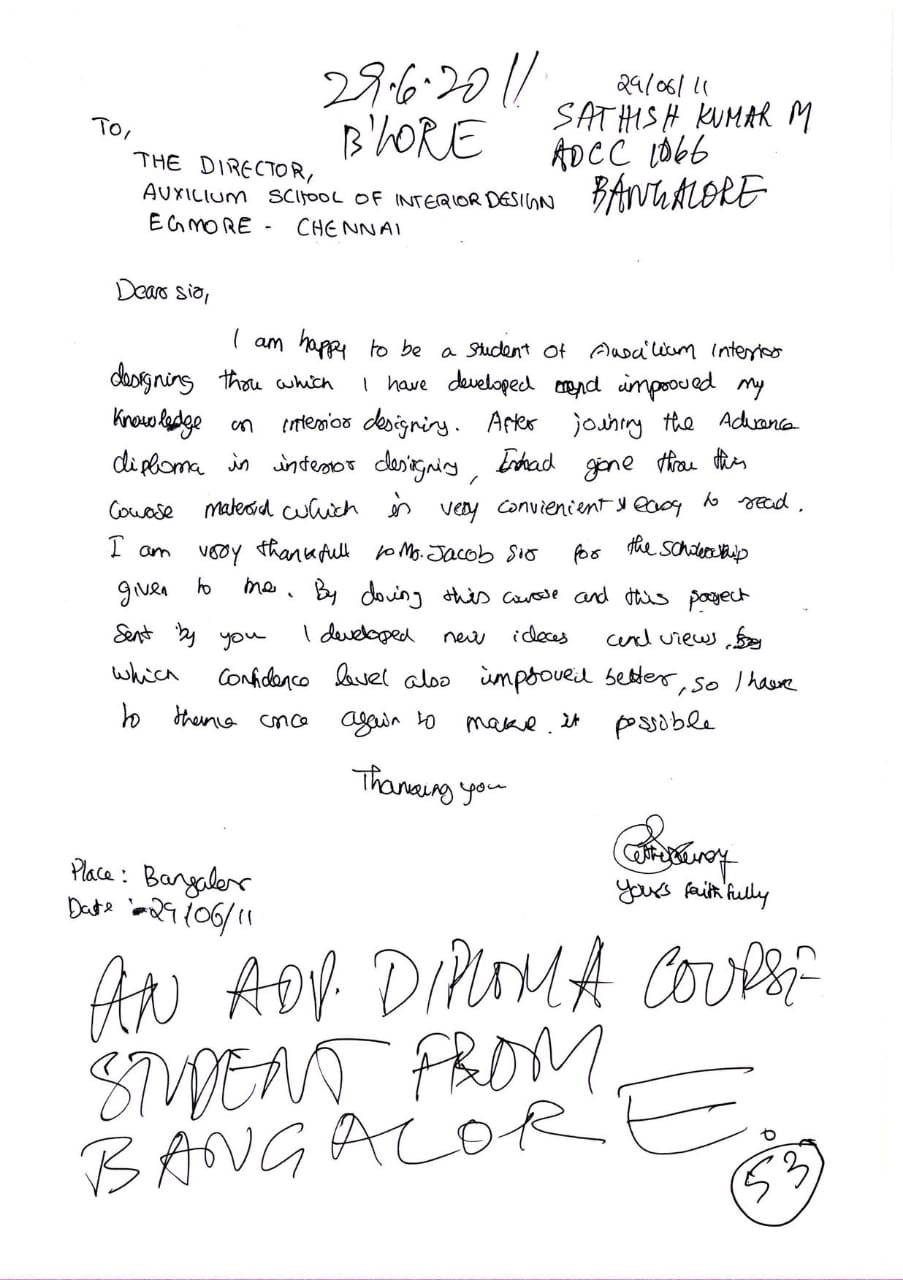 29.6.2011
B'LORE
29/06/11
SATHISH KUMAR M
ADCC 1066
BANGALORE
To,
THE DIRECTOR,
AUXILIUM SCHOOL OF INTERIOR DESIGN
EGMORE - CHENNAI
Dear sir,
I am happy to be a student of Auxilium Interior
designing throu which I have developed and improved my
knowledge on interior designing. After joining the Advance
diploma in interior designing, I had gone throu this
course material which is very convienient & easy to read.
I am very thankfull to Mr. Jacob Sir for the scholership
given to me. By doing this course and this project
sent by you I developed new ideas and views,
which confidence level also improved better, so I have
to thank once again to make it possible
Thanking you
Yours faithfully
Place: Bangalor
Date :- 29/06/11
AN ADV. DIPLOMA COURSE
STUDENT FROM
BANGALORE.
53